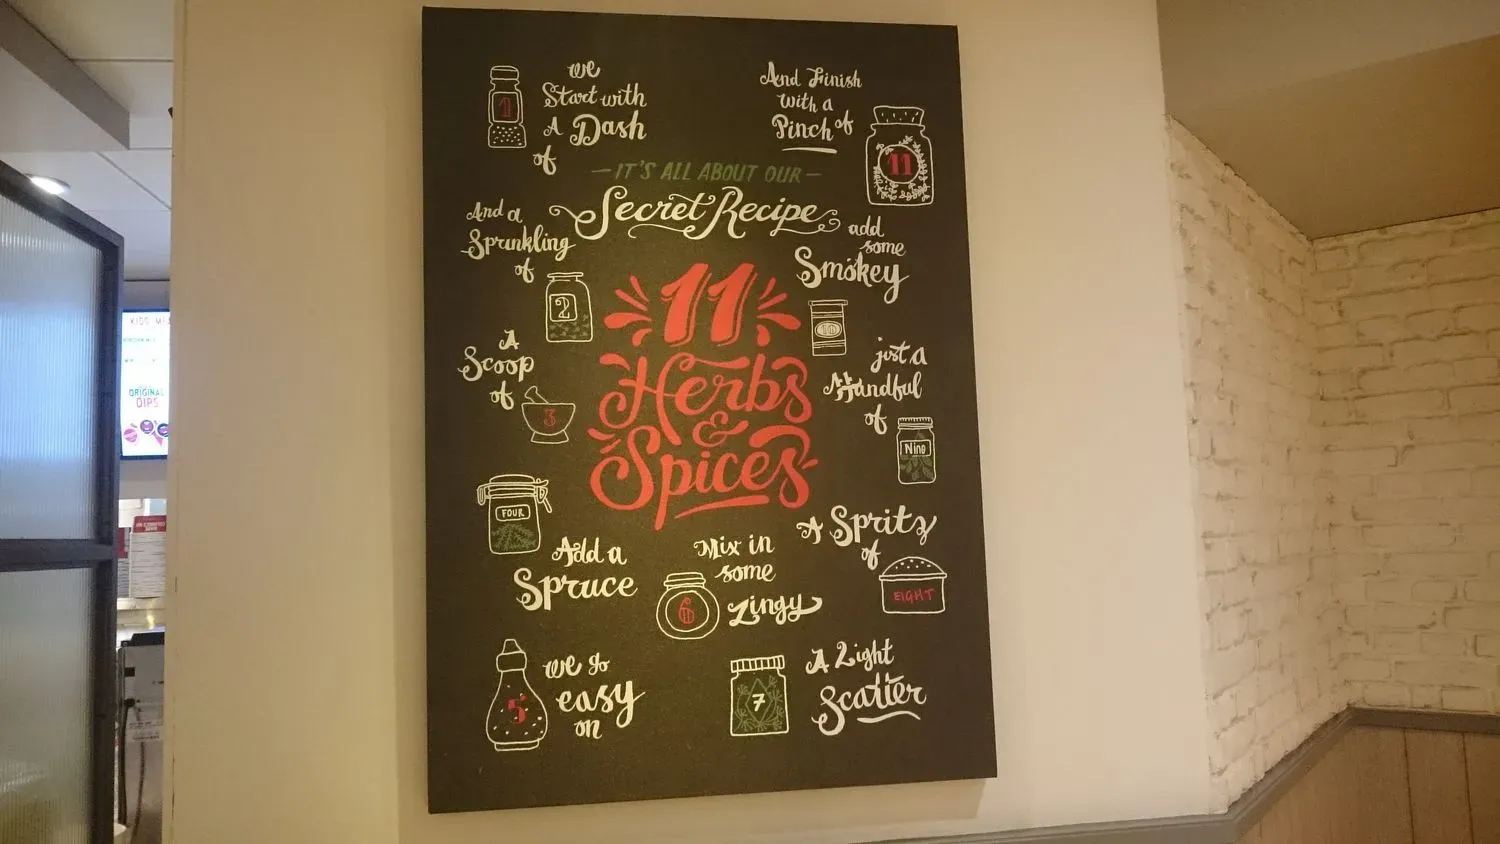 we
Start with
A Dash
of
1
And Finish
with a
Pinch of
11
IT'S ALL ABOUT OUR
Secret Recipe
And a
Sprinkling
of
2
add
some
Smokey
11
Herbs
&
Spices
A
Scoop
of
3
just a
Handful
of
Nine
FOUR
Add a
Spruce
Mix in
some
Zingy
6
A Spritz
of
EIGHT
we go
easy
on
5
7
A Light
Scatter
KIDS
ORIGINAL
DIPS